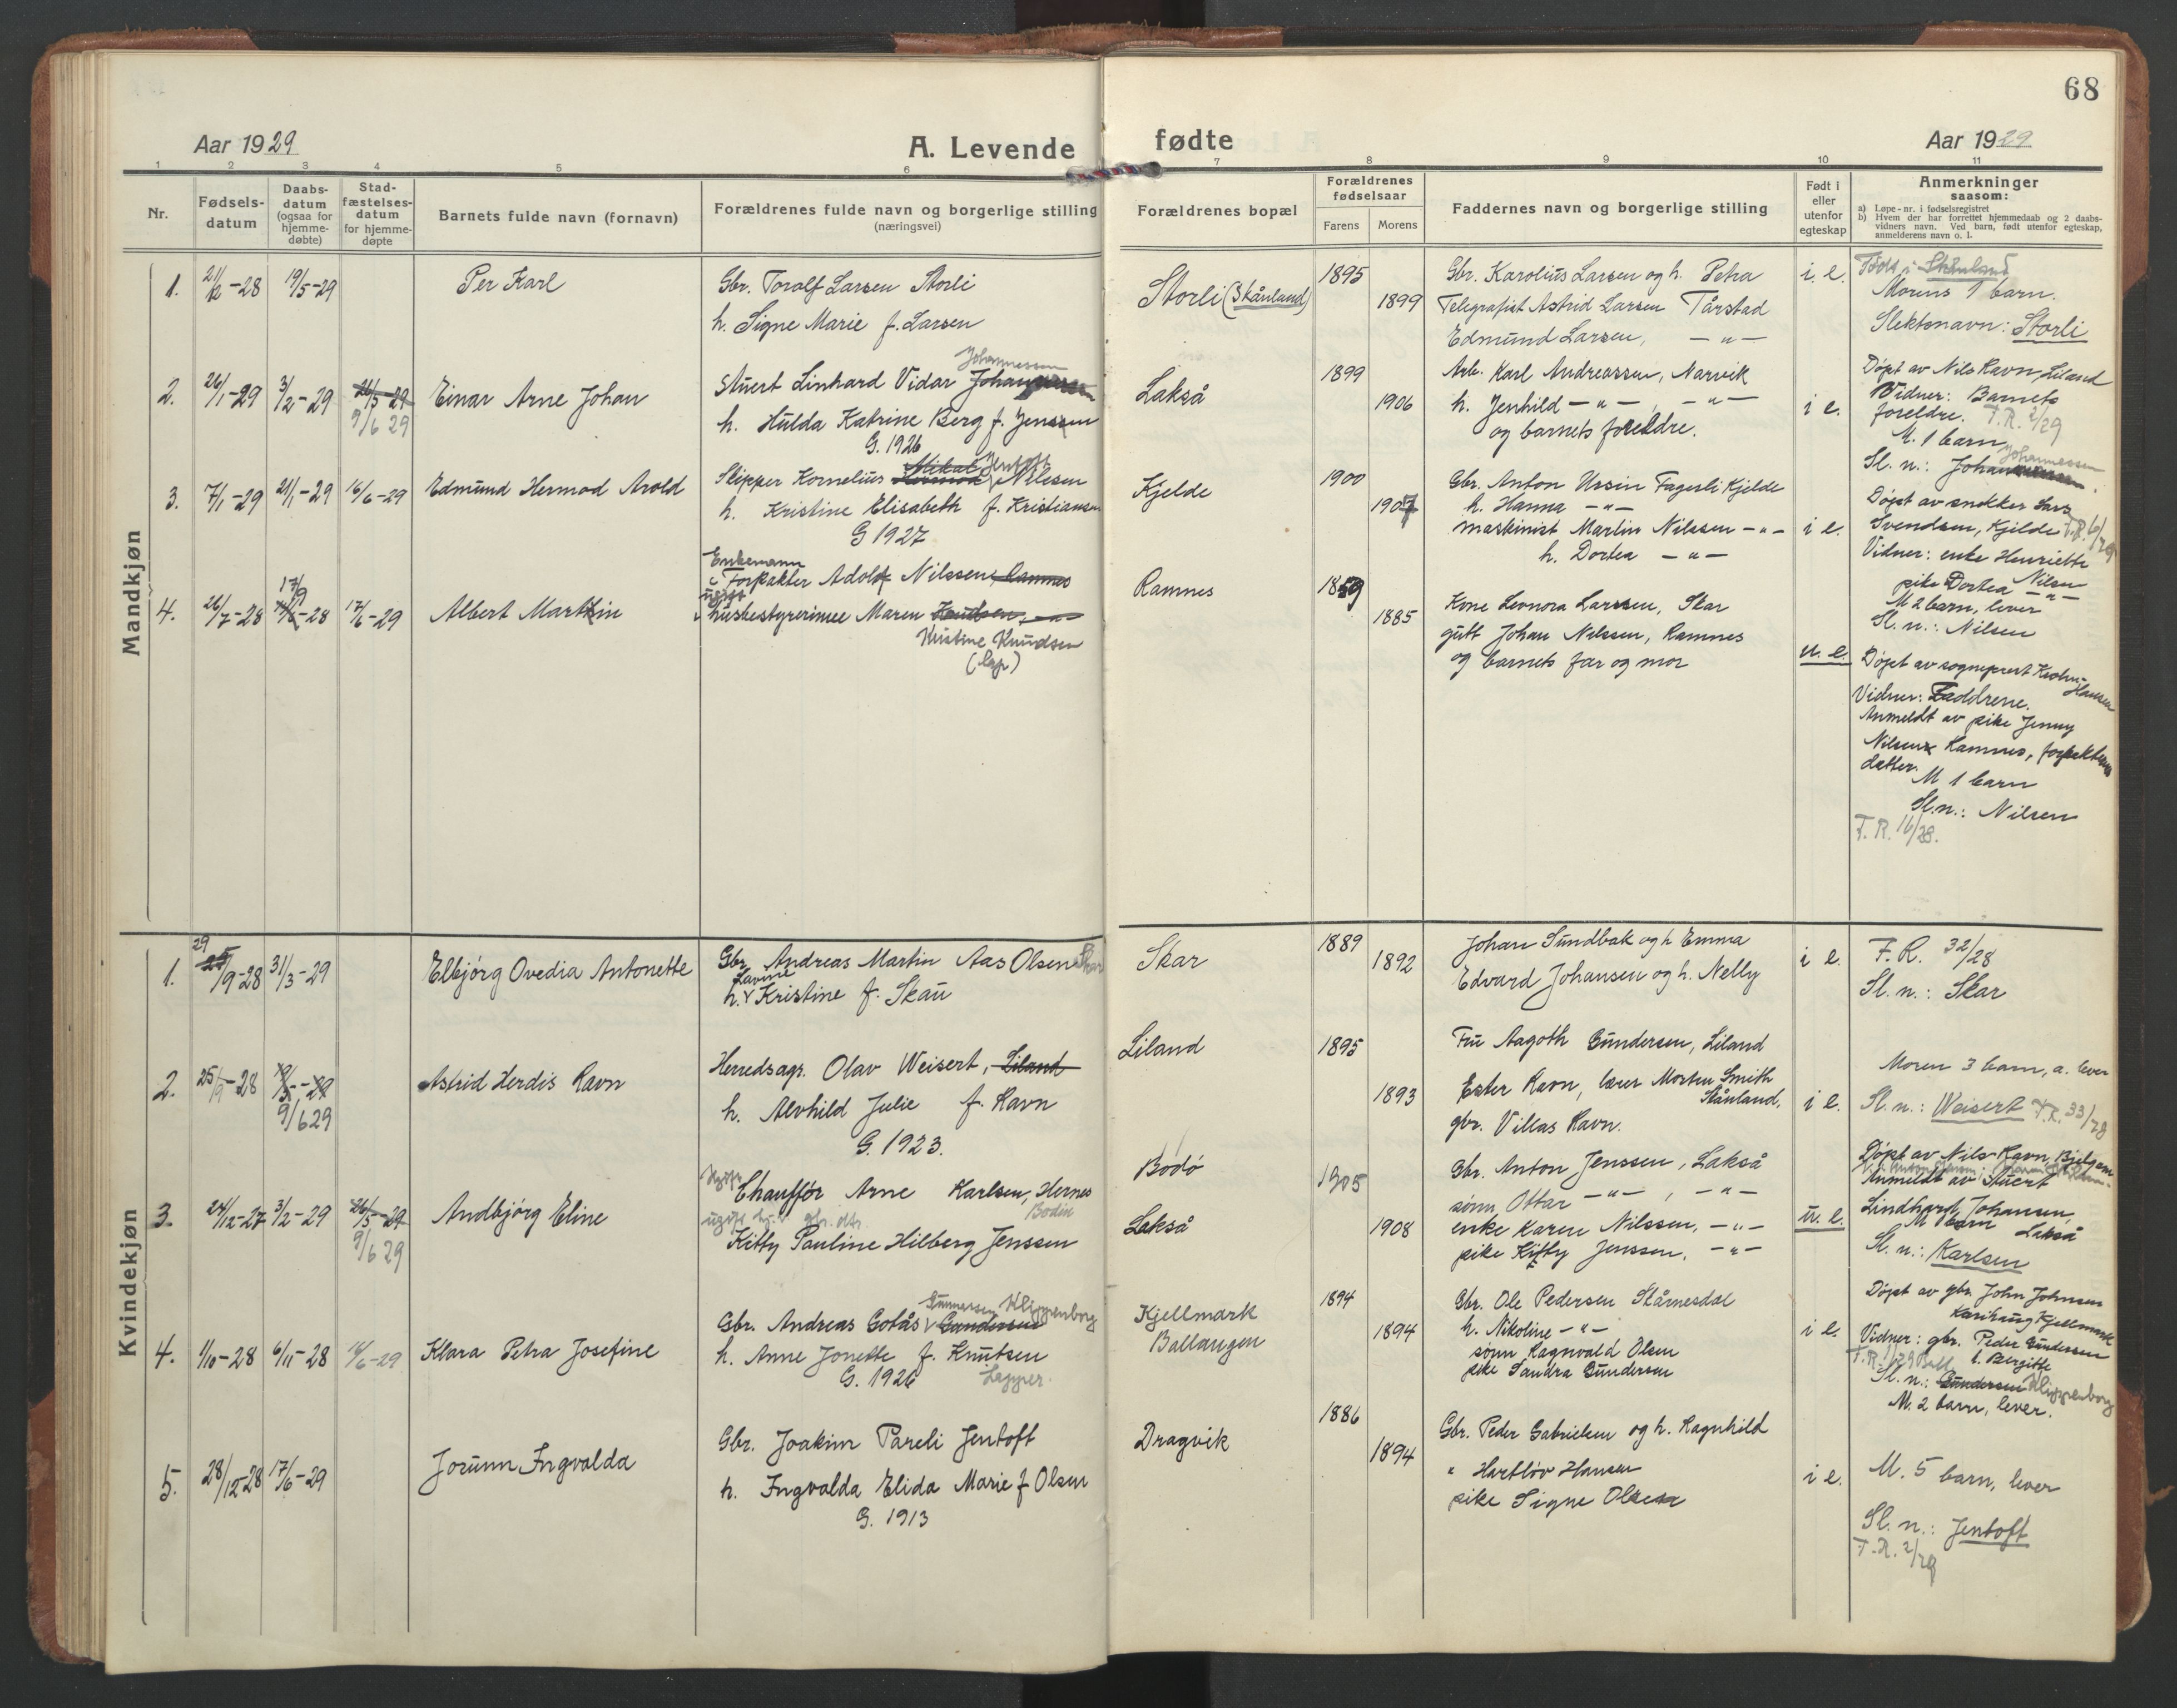 68
Aar 1929
A. Levende fødte
Aar 1929
1 2 3 4 5 6 7 8 9 10 11
Nr.
Fødsels-
datum
Daabs-
datum
(ogsaa for
hjemme-
døbte)
Stad-
fæstelses-
datum
for hjemme-
døpte
Barnets fulde navn (fornavn)
Forældrenes fulde navn og borgerlige stilling
(næringsvei)
Forældrenes bopæl
Forældrenes
fødselsaar
Farens Morens
Faddernes navn og borgerlige stilling
Født i
eller
utenfor
egteskap
Anmerkninger
saasom:
a) Løpe-nr. i fødselsregistret
b) Hvem der har forrettet hjemmedaab og 2 daabs-
vidners navn. Ved barn, født utenfor egteskap,
anmelderens navn o. l.
Mandkjøn
1. 21/12-28 19/5-29
Per Karl
Gbr. Torolf Larsen Storli
h. Signe Marie f. Larsen
Storli (Skånland)
1895
1899
Gbr. Karolius Larsen og h. Petra
Telegrafist Astrid Larsen Tårstad
Edmund Larsen, -"-
i. e.
Født i Skånland
Morens 1 barn.
Slektsnavn: Storli
2. 26/1-29 3/2-29 26/5-29
9/6 29
Einar Arne Johan
Johannessen
Stuert Linhard Vidar
h. Hulda Katrine Berg f. Jenssen
G. 1926
Lakså
1899
1906
Arb. Karl Andreassen, Narvik
h. Jenhild -"-, -"-
og barnets foreldre.
i e.
Døpt av Nils Ravn, Liland
Vidner: Barnets
foreldre. F.R. 2/29
M. 1 barn
Johannessen
Sl. n.:
3. 7/1-29 21/1-29 16/6-29
Edmund Hermod Arold
Mikal Jentoft
Skipper Kornelius Nilsen
h. Kristine Elisabeth f. Kristiansen
G 1927
Kjelde
1900
1907
Gbr. Anton Ursin Fagerli Kjelde
h. Hanna -"-
maskinist Martin Nilssen -"-
h. Dortea -"-
i e.
Døpt av snekker Lars
Svendsen, Kjelde F.R. 6/29
Vidner: enke Henriette
Nilsen
pike Dortea -"-
M 2 barn, lever
Sl. n.: Nilsen
4. 26/7-28 17/9
-28 17/6-29
Albert Martin
Enkemann
Forpakter Adolf Nilssen, Ramnes
ugift
husbestyrerinne Maren Knudsen, -"-
Kristine Knudsen
(Lap)
Ramnes
1859
1885
Kone Leonora Larssen, Skar
gutt Johan Nilssen, Ramnes
og barnets far og mor
u. e.
Døpt av sogneprest Krohn-
Hansen
Vidner: Faddrene.
Anmeldt av pike Jenny
Nilsen Ramnes, forpakterens
datter.
M 1 barn
Sl.n.: Nilsen
F. R. 16/28.
Kvindekjøn
1. 29
/9-28 31/3-29
Elbjörg Ovedia Antonette
Gbr. Andreas Martin Aas Olsen Skar
Lavine
h. Kristine f. Skau
Skar
1889
1892
Johan Sundbak og h Emma
Edvard Johansen og h. Nelly
i e.
F. R. 32/28
Sl. n.: Skar
2. 25/9-28
9/6 29
Astrid Herdis Ravn
Herredsagr. Olav Weisert, Liland
h. Alvhild Julie f. Ravn
G. 1923.
Liland
1895
1893
Fru Aagoth Gundersen, Liland
Ester Ravn, lærer Morten Smith
Skånland,
gbr. Villas Ravn.
i e.
Moren 3 barn, a. lever
Sl. n.: Weisert F.R. 33/28
3. 24/12-27 3/2-29 26/5-29
9/6 29
Andbjörg Eline
Chauffør Arne Karlsen, Hernes
Bodin
ugift gbr. dtr.
Kitty Pauline Hilberg Jenssen
Bodö
Lakså
1905
1908
Gbr. Anton Jenssen, Lakså
sönn Ottar -"-, -"-
enke Karen Nilssen, -"-
pike Kitty Jenssen, -"-
u. e.
Døpt av Nils Ravn,
Anmeldt av Stuert
Lindhard Johansen,
Lakså
M barn
Sl. n.: Karlsen
4. 1/10-28 6/11-28 16/6-29
Klara Petra Josefine
Gunnarsen Klippenborg
Gbr. Andreas Gotås Gundersen
h. Anne Jonette f. Knutsen
G. 1926 Lapper.
Kjellmark
Ballangen
1894
1894
Gbr. Ole Pedersen Skårnesdal
h. Nikoline -"-
sönn Ragnvald Olsen
pike Sandra Gundersen
i e.
Døpt av gbr. John Johnsen
Kjellmark
Vidner: gbr. Peder Gundersen
h. Bergitte
F.R. 1/29 Ball.
Sl. n.: Gundersen Klippenborg
M. 2 barn, lever.
5. 28/12-28 17/6-29
Jorunn Ingvalda
Gbr. Joakim Pareli Jentoft
h. Ingvalda Elida Marie f Olsen
G. 1913
Dragvik
1886
1894
Gbr. Peder Gabrielsen og h. Ragnhild
" Hartløv Hansen
pike Signe Olsen
i e.
M. 5 barn, lever
Sl. n.: Jentoft
F.R. 2/29